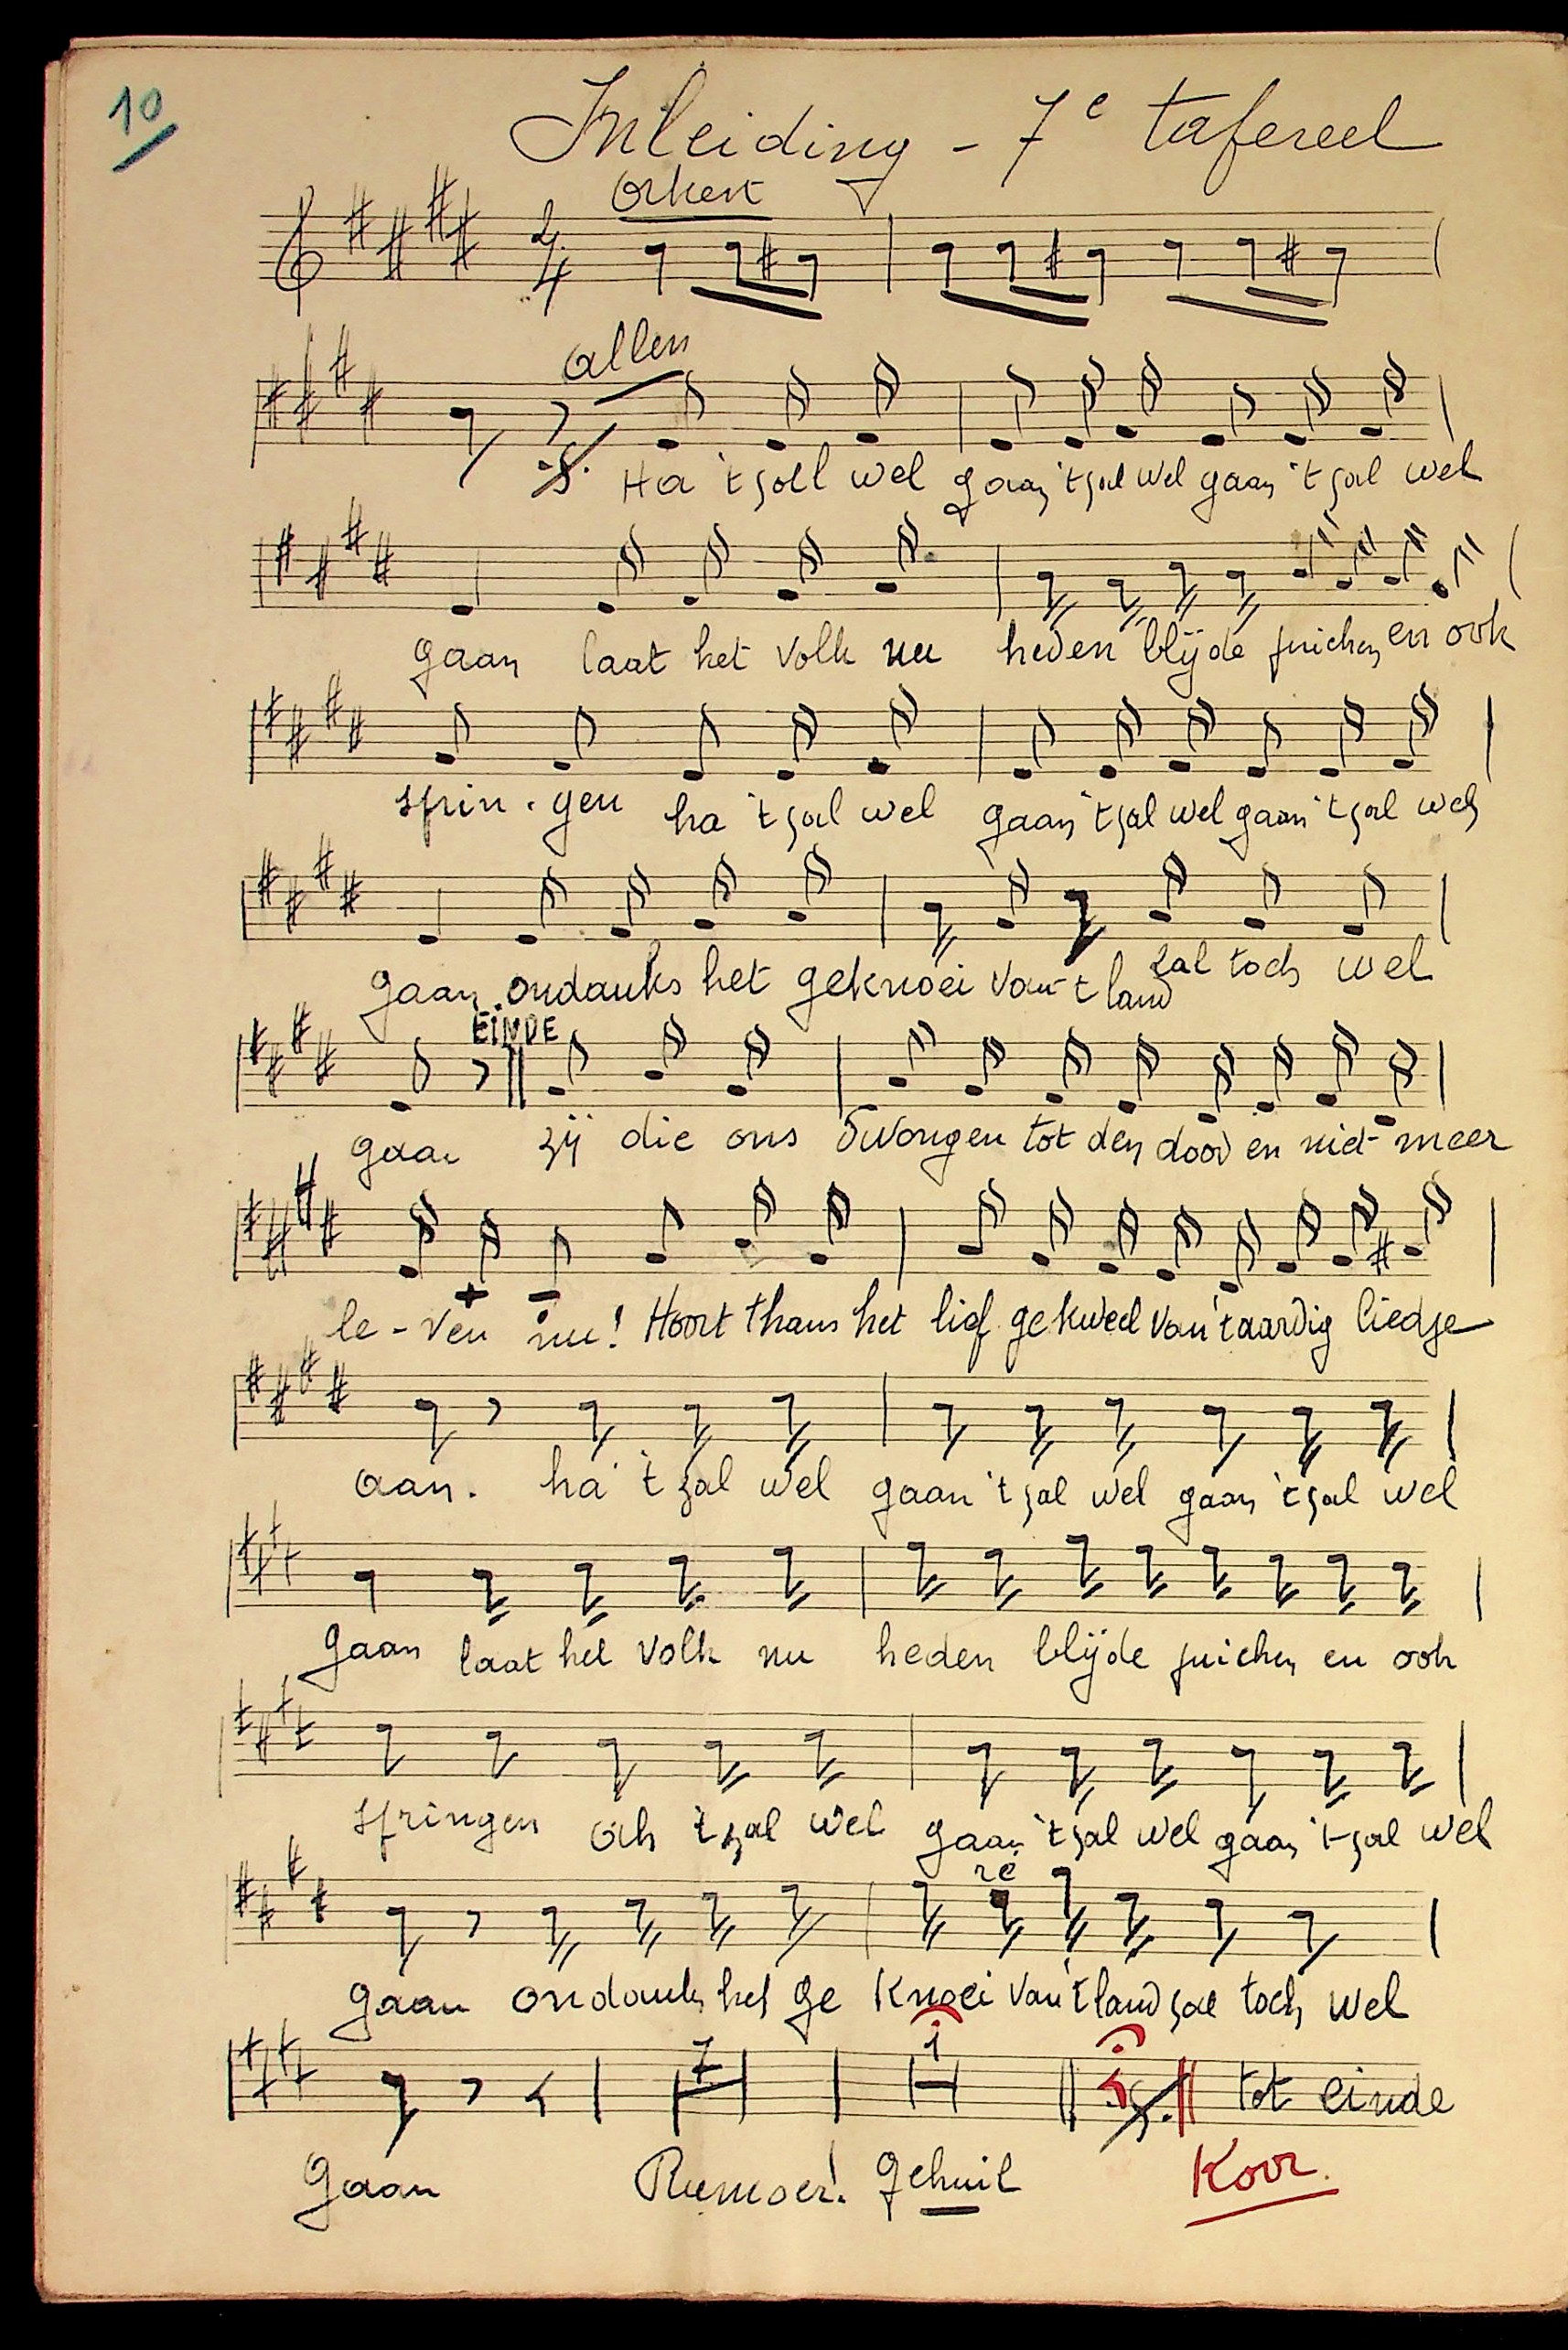 10
Inleiding - 7e tafereel
Orkest
2/4
allen
Ha 't zall wel gaan 't zal wel gaan 't zal wel
gaan laat het volk nu heden blijde juichen en ook
sprin-gen ha 't zal wel gaan 't zal wel gaan 't zal wel
gaan ondanks het geknoei van 't land zal toch wel
EINDE
gaan zij die ons dwongen tot den dood en niet meer
le-ven nu! Hoort thans het lief gekweel van 't aardig liedje
aan. ha 't zal wel gaan 't zal wel gaan 't zal wel
gaan laat het volk nu heden blijde juichen en ook
springen ah 't zal wel gaan 't zal wel gaan 't zal wel
ré
gaan ondanks het ge knoei van 't land zal toch wel
7 1 tot einde
Gaan Rumoer! Gehuil Koor.